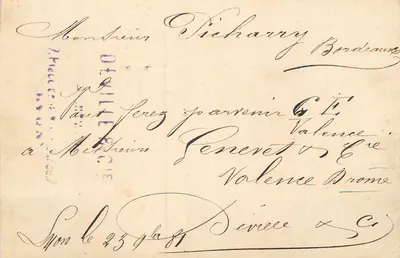 Monsieur Picharry
Bordeaux
Vous ferez parvenir G E
Valence
à Messieurs Genevet & Cie
Valence Drôme
Lyon le 23 9bre 81 Déville & Cie
DÉVILLE & CIE
LYON